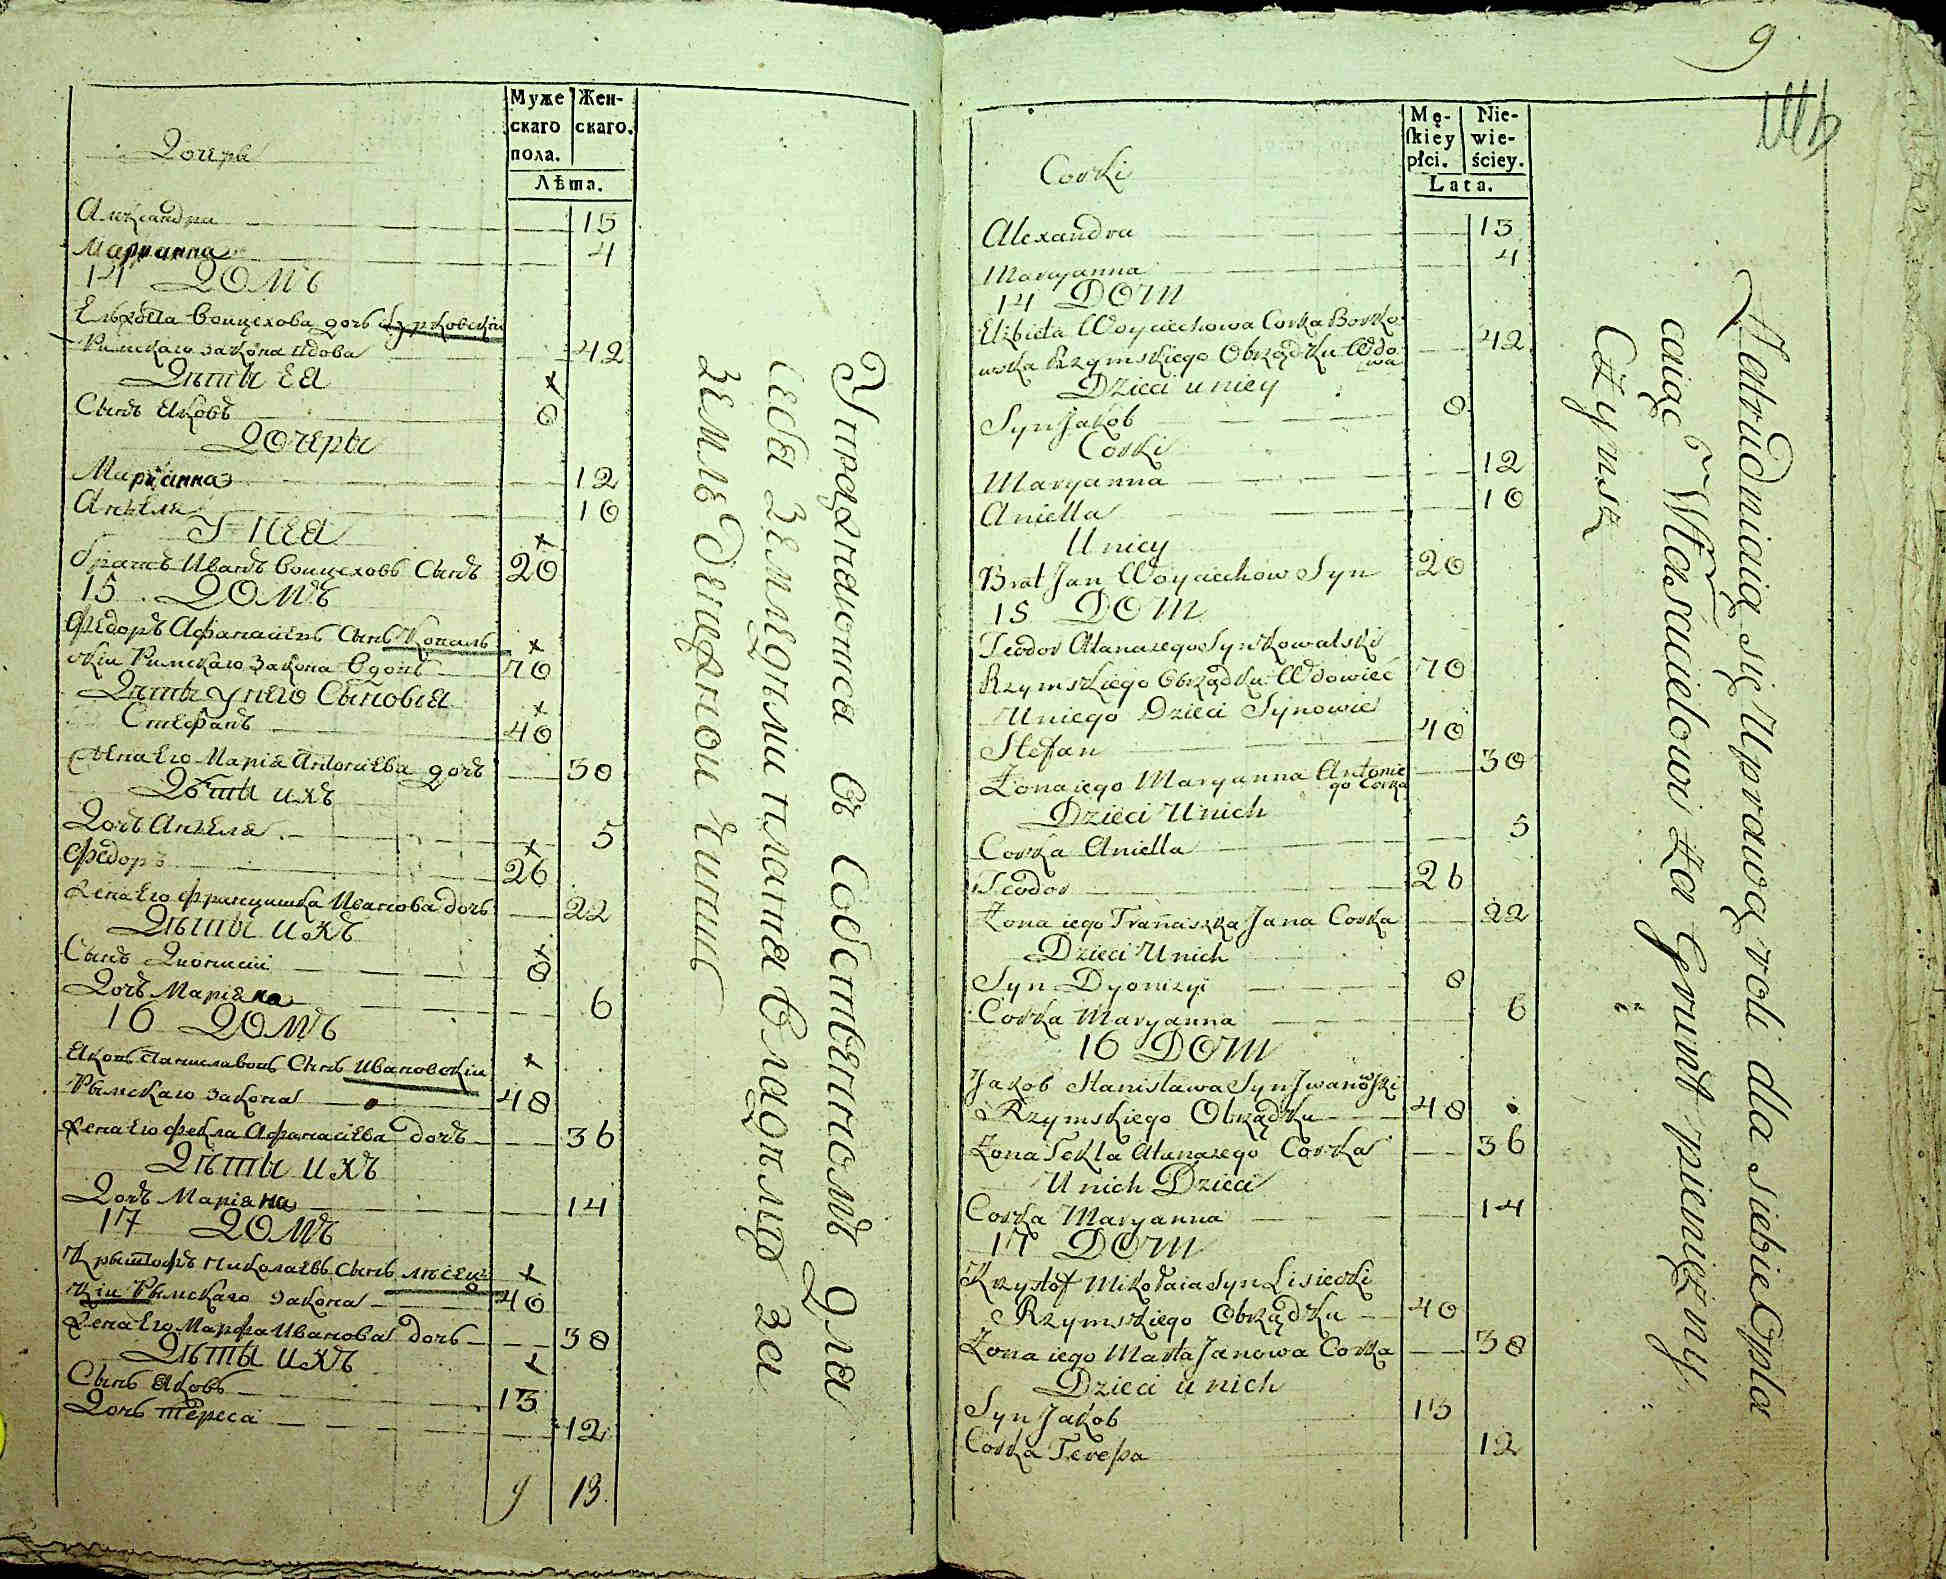 Муже
скаго
пола.
Жен-
скаго.
Лѣта.
Дочеры
Александра 15
Марианна 4
14 ДОМЪ
Елжбета Воицехова дочь
Римскаго закона вдова 42
Дѣты ея
Сынъ Яковъ 8
Дочеры
Марианна 12
Анеля 10
У нея
братъ Иванъ Воицеховъ Сынъ 20
15 ДОМЪ
Федоръ Афанасиевъ Сынъ Коваль
скіи Римскаго Закона Вдовъ 70
Дѣты у него Сыновья
Стефанъ 40
Жена Его Марія Антониева дочъ 30
Дѣты ихъ
Дочъ Анеля 5
Федоръ 26
Жена Его Францишка Иванова дочь 22
Дѣты ихъ
Сынъ Дионисіи 8
Дочъ Маріяна 6
16 ДОМЪ
Яковъ Станиславовъ Сынъ Ивановскіи
Рымскаго закона 48
Жена Его Фекла Афанасиева дочъ 36
Дѣты ихъ
Дочъ Маріяна 14
17 ДОМЪ
Крыштофъ Николаевъ Сынъ Лисец
кіи Рымскаго Закона 40
Жена Его Марфа Иванова дочь 38
Дѣты ихъ
Сынъ Яковъ 13
Дочъ Тереса 12
9 13
Упражнаются въ Собственномъ Для
Себя Земледѣліи платя Владѣлцу за
Землѣ Денежнои Чиншъ
9
Mę-
ſkiey
płci.
Nie-
wie-
ściey.
Lata.
Corki
Alexandra 15
Maryanna 4
14 DOM
Elzbieta Woyciechowa Corka Borko
wska Rzymskiego Obrządku Wdo
wa 42
Dzieci u niey
Syn Jakob 8
Corki
Maryanna 12
Aniella 10
U niey
Brat Jan Woyciechow Syn 20
15 DOM
Teodor Atanazego Syn Kowalski
Rzymskiego Obrządku Wdowiec 70
U niego Dzieci Synowie
Stefan 40
Żona iego Maryanna Antonie
go Corka 30
Dzieci U nich
Corka Aniella 5
Teodor 26
Żona iego Franciszka Jana Corka 22
Dzieci U nich
Syn Dyonizyi 8
Corka Maryanna 6
16 DOM
Jakob Stanisława Syn Jwanowski
Rzymskiego Obrządku 48
Żona Tekla Atanazego Corka 36
U nich Dzieci
Corka Maryanna 14
17 DOM
Krzystof Mikołaia Syn Lisiecki
Rzymskiego Obrządku 40
Żona iego Marta Janowa Corka 38
Dzieci u nich
Syn Jakob 13
Corka Tereſsa 12
Zatrudniaią się Uprawą roli dla siebie Opła
caiąc Właścicielowi Za Grunt pieniężny
Czynsz